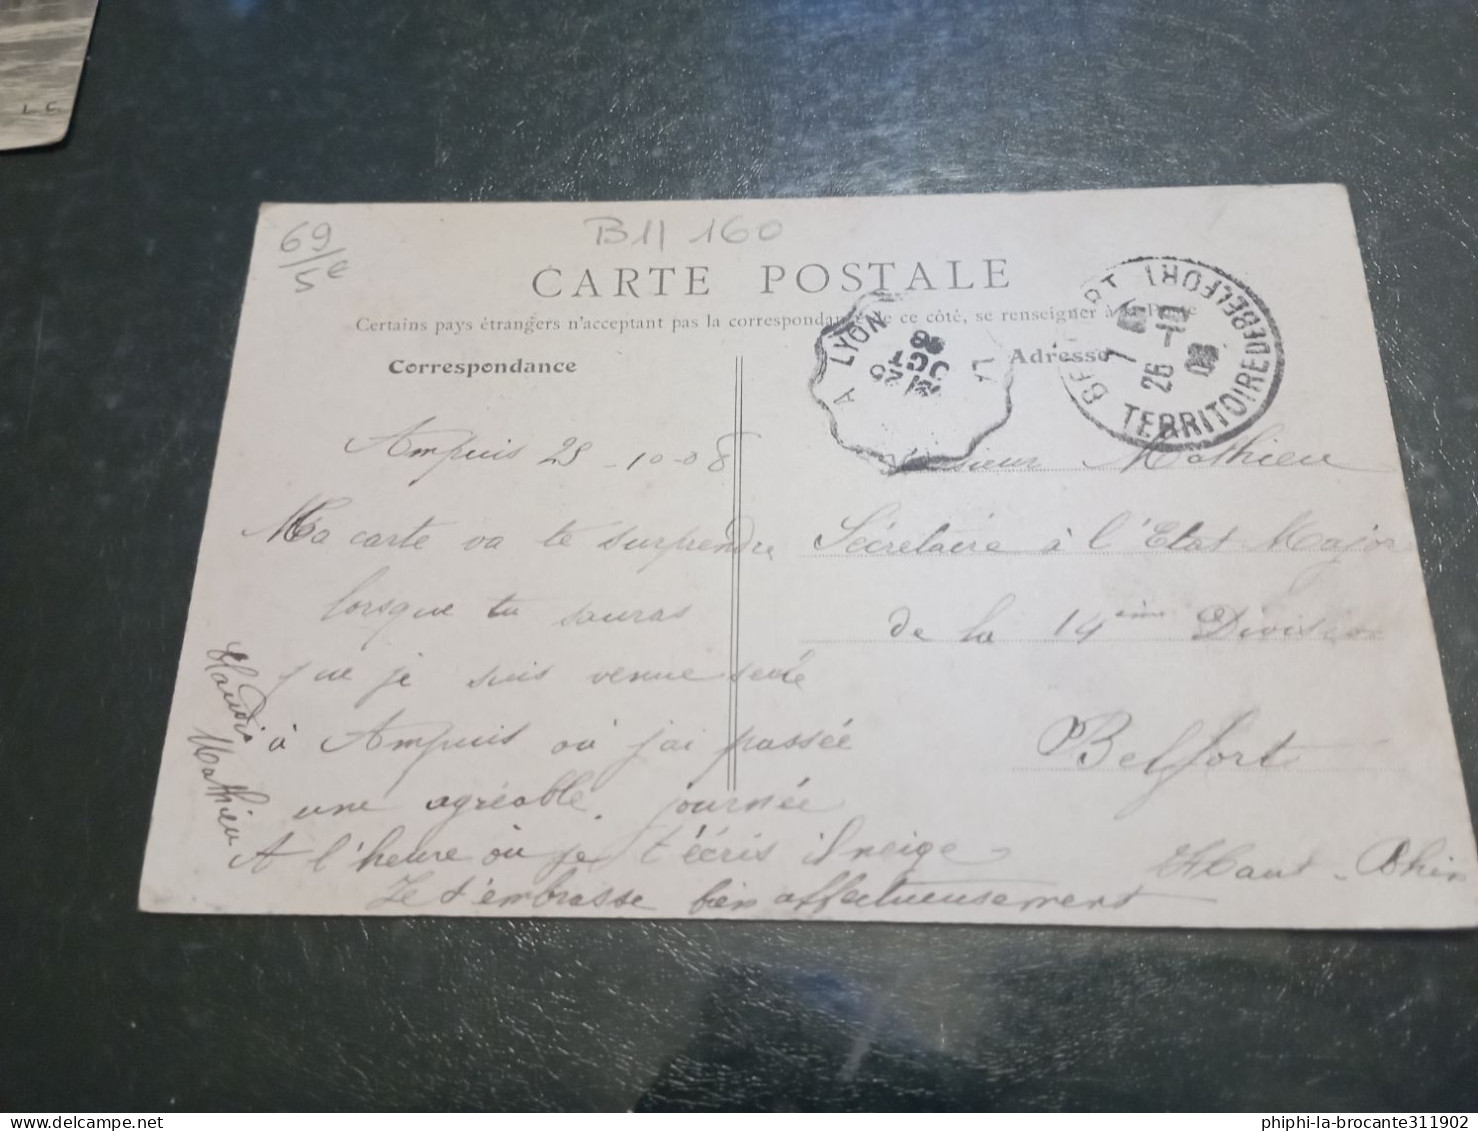 L. C.
69/5€
B11 160
CARTE POSTALE
Certains pays étrangers n'acceptant pas la correspondance de ce côté, se renseigner à la Poste
Correspondance
Ampuis 25-10-08
Ma carte va te surprendre
lorsque tu sauras
que je suis venue seule
à Ampuis où j'ai passée
une agréable journée
A l'heure où je t'écris il neige
Je t'embrasse bien affectueusement
Claudia Mathieu
A LYON
25
OCT
08
BELFORT
TERRITOIRE DE BELFORT
26
Adresse
Monsieur Mathieu
Sécretaire à l'Etat Major
de la 14ème Division
Belfort
Haut-Rhin
phiphi-la-brocante311902